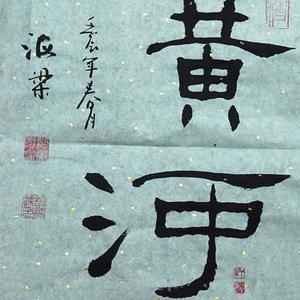 黄河
壬辰年春月
海梁